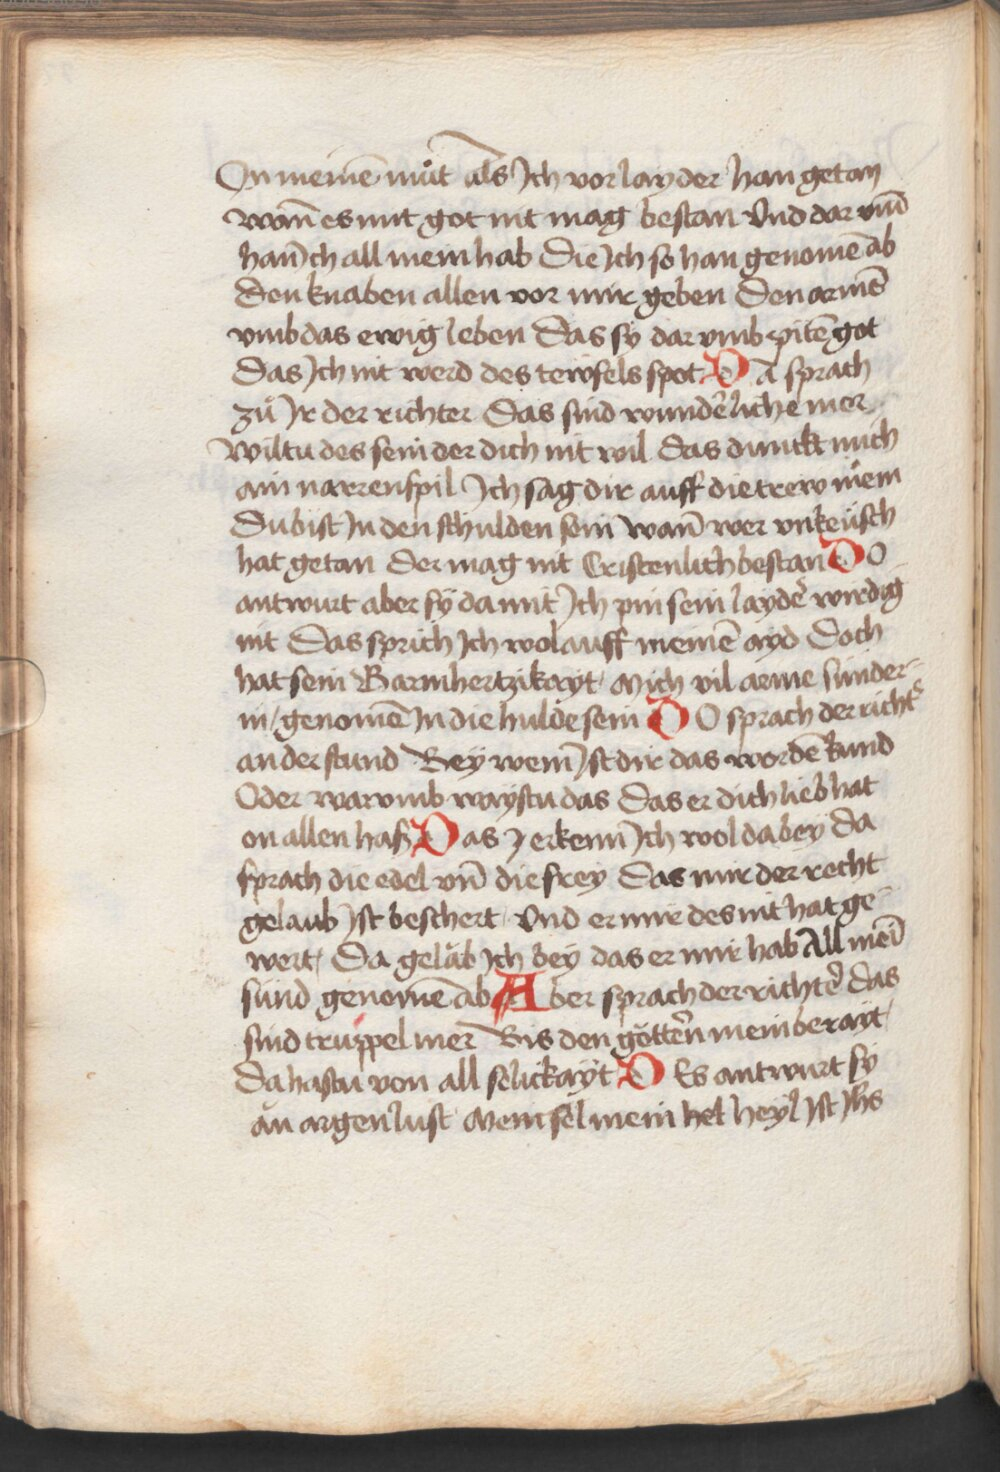 On meinē můt als Ich vor layder han getan
wañ es mit got nit mag bestan Vnd dar vm̄
han Ich all mein hab Die Ich so han genomē ab
Den knaben allen vor mir geben Den armē
vmb das ewig leben Das sy dar vmb pitē got
Das Ich nit werd des tewfels spot DA sprach
zů Ir der richter Das sind wunderliche mer
Wiltu des sein der dich nit wil das dunckt mich
ain narren spil Ich sag dir auff die trew mein
Du bist In den schulden sein Wañ wer vnkeüsch
hat getan der mag nit Cristenlich bestan DO
antwurt aber sy damit Ich pin sein layder wirdig
nit Das sprich Ich wol auff meinē ayd Doch
hat sein Barmhertzikayt Mich vil arme sünder-
in genomē In die hulde sein DO sprach der richtˢ
an der stund Bey wem Ist dir das wordē kund
Oder warvmb waystu das Das er dich lieb hat
on allen haß Das erkenn Ich wol da bey da
sprach die edel vñ die frey Das mir der recht
gelaub Ist beschert Vnd er mir des nit hat ge-
wert Da gelaub Ich bey das er mir hab All mei
sünd genomē ab Aber sprach der richter das
sind truppel mer Bis den göttern mein berayt
Da hastu von all selickayt DEs antwurt sy
an argen lust Mein sel mein hel heyl Ist Ihs